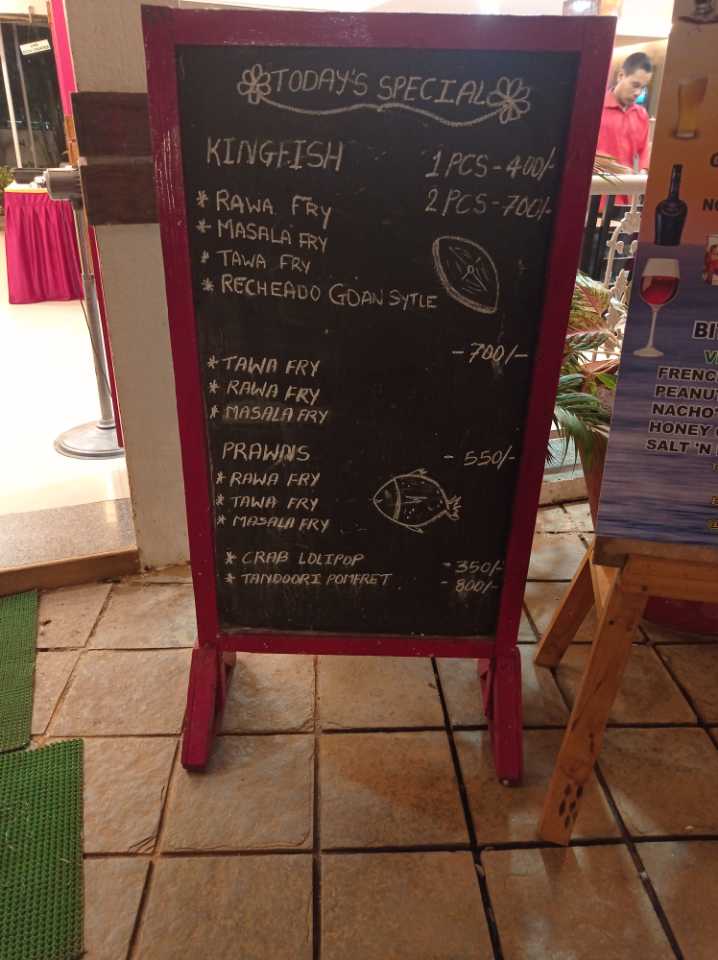 TODAY'S SPECIAL
KINGFISH 1 PCS - 400/-
* RAWA FRY 2 PCS - 700/-
* MASALA FRY
* TAWA FRY
* RECHEADO GOAN SYTLE
- 700/-
* TAWA FRY
* RAWA FRY
* MASALA FRY
PRAWNS - 550/-
* RAWA FRY
* TAWA FRY
* MASALA FRY
* CRAB LOLIPOP - 350/-
* TANDOORI POMFRET - 800/-
BI
FRENC
PEANUT
NACHO
HONEY
SALT 'N